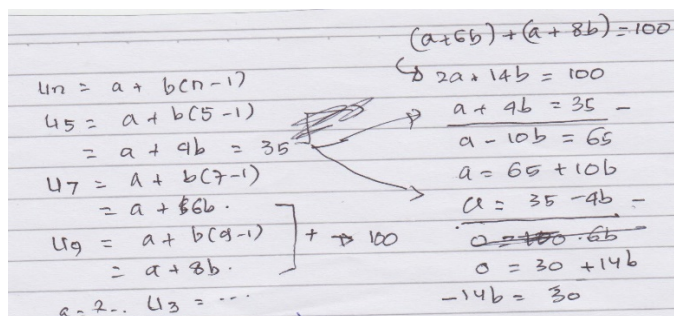 Un = a + b(n-1)
U5 = a + b(5-1)
= a + 4b = 35
U7 = a + b(7-1)
= a + 6b.
U9 = a + b(9-1)
= a + 8b.
+ → 100
a = ?.. U3 = ...
(a+6b) + (a + 8b) = 100
↳ 2a + 14b = 100
a + 4b = 35 -
a - 10b = 65
a = 65 + 10b
a = 35 - 4b -
0 = 30 + 14b
-14b = 30